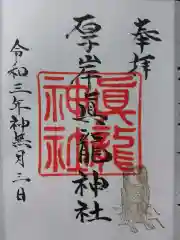 奉拝
厚岸真龍神社
眞龍
神社
令和三年神無月三日